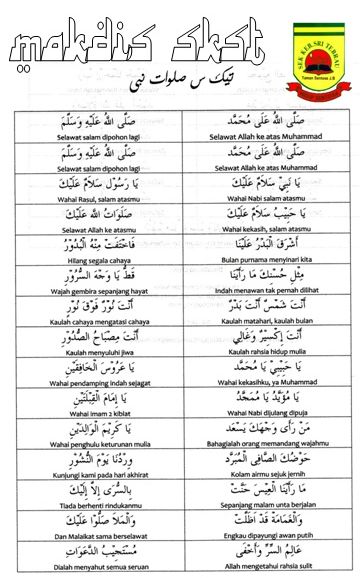 makdis skst
SEK KEB SRI TEBRAU
Taman Sentosa J.B
تيک س صلوات نبي
صَلَّى اللهُ عَلَى مُحَمَّد
Selawat Allah ke atas Muhammad
صَلَّى اللهُ عَلَيْهِ وَسَلَّمَ
Selawat salam dipohon lagi
صَلَّى اللهُ عَلَى مُحَمَّد
Selawat Allah ke atas Muhammad
صَلَّى اللهُ عَلَيْهِ وَسَلَّمَ
Selawat salam dipohon lagi
يَا نَبِيْ سَلاَمٌ عَلَيْكَ
Wahai Nabi salam atasmu
يَا رَسُوْل سَلاَمٌ عَلَيْكَ
Wahai Rasul, salam atasmu
يَا حَبِيْبُ سَلاَمٌ عَلَيْكَ
Wahai kekasih, salam atasmu
صَلَوَاتُ اللهِ عَلَيْكَ
Selawat Allah ke atasmu
أَشْرَقَ الْبَدْرُ عَلَيْنَا
Bulan purnama menyinari kita
فَاخْتَفَتْ مِنْهُ الْبُدُوْرُ
Hilang segala cahaya
مِثْلَ حُسْنِكَ مَا رَأَيْنَا
Indah menawan tak pernah dilihat
قَطُّ يَا وَجْهَ السُّرُوْرِ
Wajah gembira sepanjang hayat
أَنْتَ شَمْسٌ أَنْتَ بَدْرٌ
Kaulah matahari, kaulah bulan
أَنْتَ نُوْرٌ فَوْقَ نُوْرٍ
Kaulah cahaya mengatasi cahaya
أَنْتَ إِكْسِيْرٌ وَغَالِي
Kaulah rahsia hidup mulia
أَنْتَ مِصْبَاحُ الصُّدُوْرِ
Kaulah menyuluhi jiwa
يَا حَبِيْبِيْ يَا مُحَمَّدُ
Wahai kekasihku, ya Muhammad
يَا عَرُوْسَ الْخَافِقَيْنِ
Wahai pendamping indah sejagat
يَا مُؤَيَّدُ يَا مُمَجَّدُ
Wahai Nabi dijulang dipuja
يَا إِمَامَ الْقِبْلَتَيْنِ
Wahai imam 2 kiblat
مَنْ رَأَى وَجْهَكَ يَسْعَد
Bahagialah orang memandang wajahmu
يَا كَرِيْمَ الْوَالِدَيْنِ
Wahai penghulu keturunan mulia
حَوْضُكَ الصَّافِي الْمُبَرَّد
Kolam airmu sejuk jernih
وِرْدُنَا يَوْمَ النُّشُوْرِ
Kunjungi kami pada hari akhirat
مَا رَأَيْنَا الْعِيْسَ حَنَّتْ
Sepanjang malam unta berjalan
بِالسُّرَى إِلاَّ إِلَيْكَ
Tiada berhenti rindukanmu
وَالْغَمَامَة قَدْ أَظَلَّتْ
Engkau dipayungi awan putih
وَالْمَلاَ صَلُّوْا عَلَيْكَ
Dan Malaikat sama berselawat
عَالِمُ السِّرِّ وَأَخْفَى
Allah mengetahui rahsia sulit
مُسْتَجِيْبُ الدَّعَوَاتِ
Dialah menyahut semua seruan